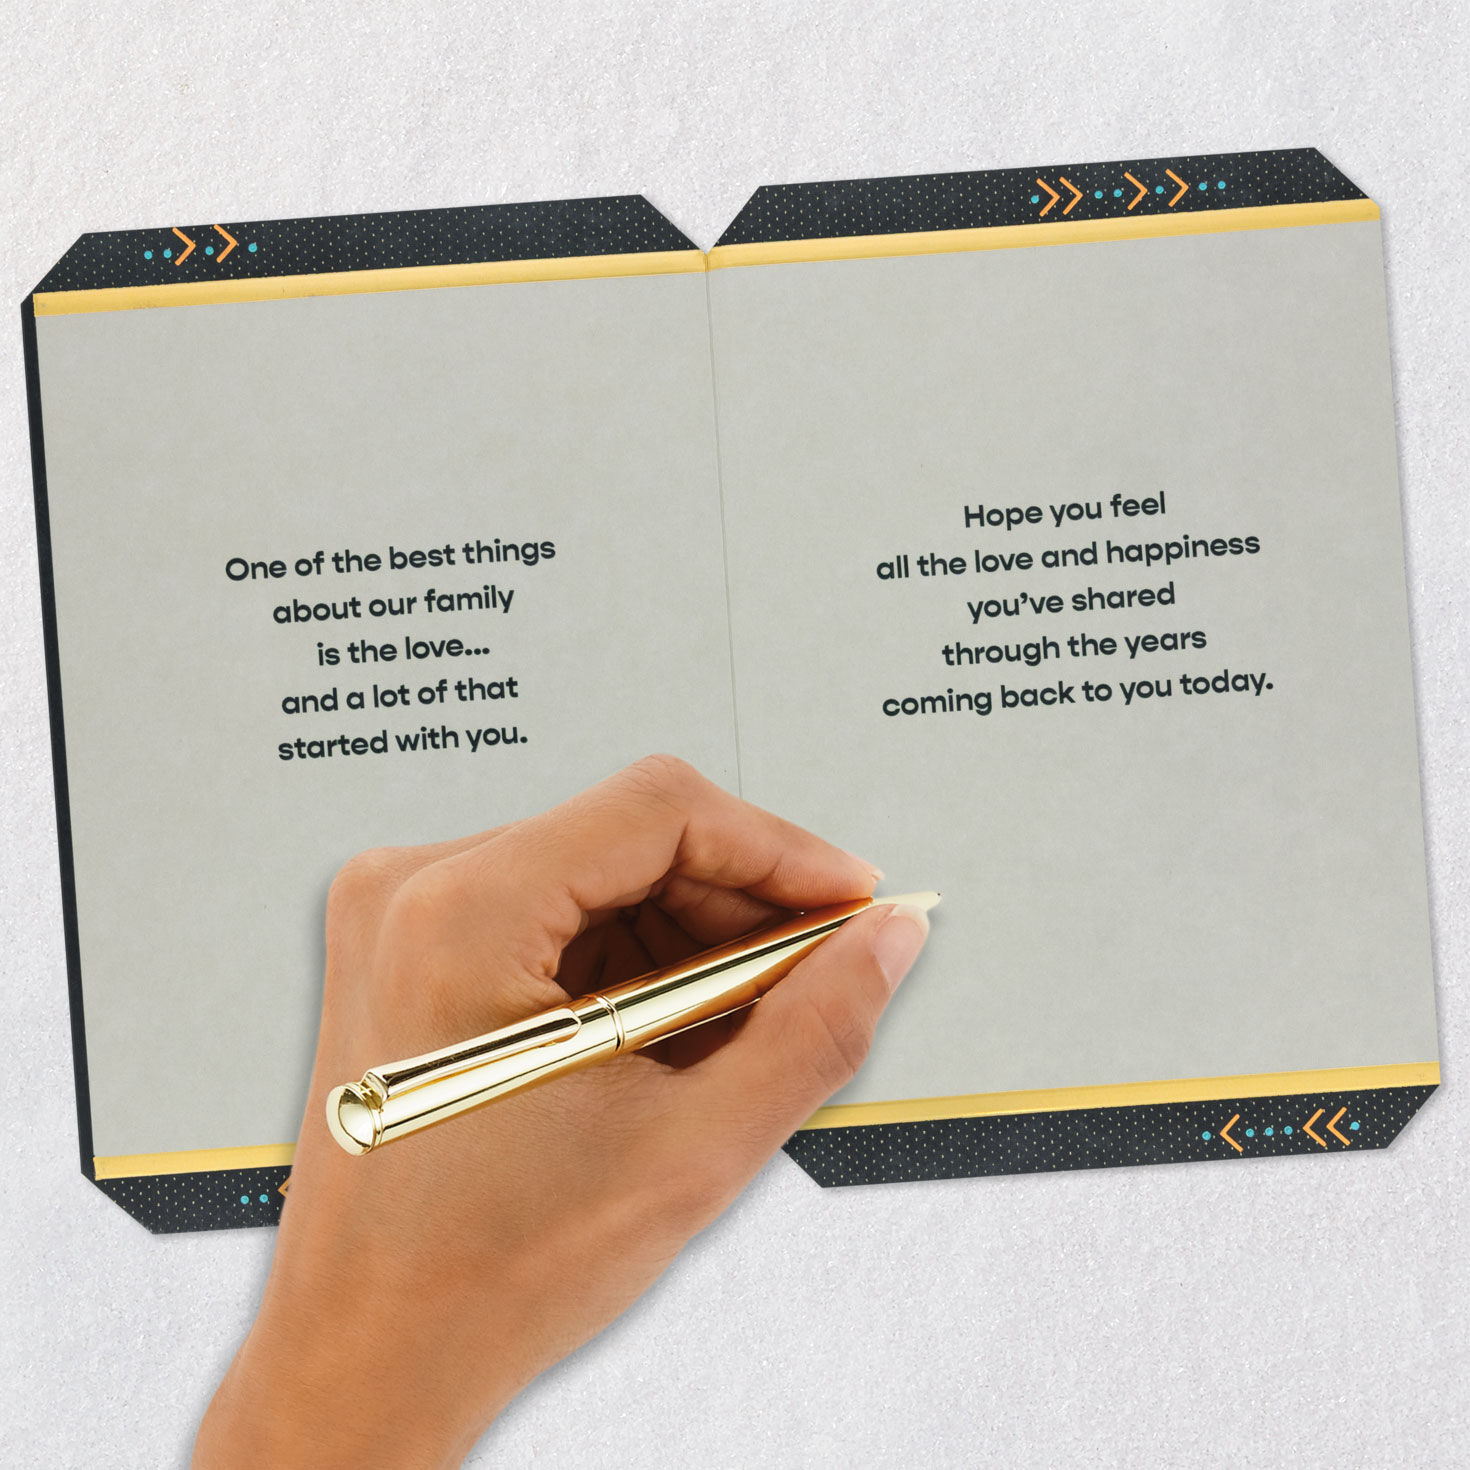 One of the best things
about our family
is the love...
and a lot of that
started with you.
Hope you feel
all the love and happiness
you've shared
through the years
coming back to you today.